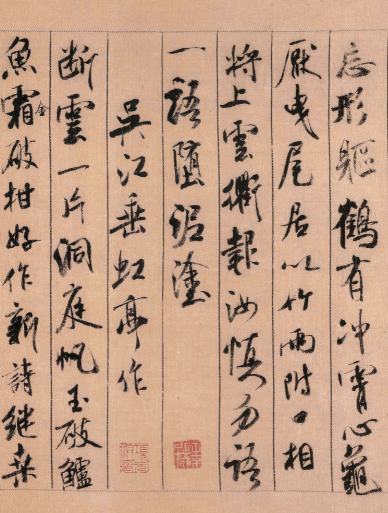 忘形軀鶴有沖霄心龜
厭曳尾居以竹兩附口相
將上雲衢報汝慎勿語
一語墮泥塗
吳江垂虹亭作
断雲一片洞庭帆玉破鱸
魚霜破柑好作新詩继桒
金